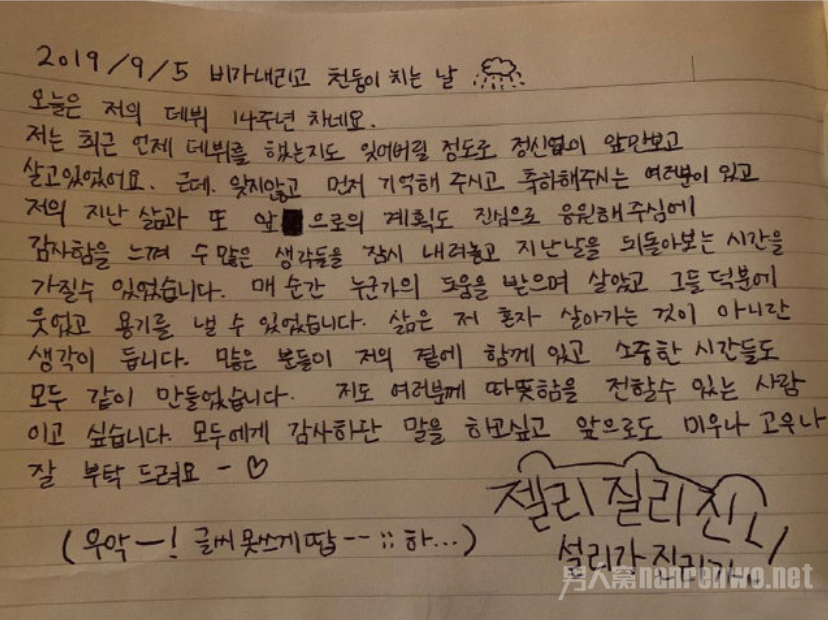 2019/9/5 비가내리고 천둥이 치는 날
오늘은 저의 데뷔 14주년 차네요.
저는 최근 언제 데뷔를 했는지도 잊어버릴 정도로 정신없이 앞만보고
살고있었어요. 근데. 잊지않고 먼저 기억해 주시고 축하해주시는 여러분이 있고
저의 지난 삶과 또 앞으로의 계획도 진심으로 응원해주심에
감사함을 느껴 수많은 생각들을 잠시 내려놓고 지난날을 뒤돌아보는 시간을
가질수 있었습니다. 매 순간 누군가의 도움을 받으며 살았고 그들 덕분에
웃었고 용기를 낼 수 있었습니다. 삶은 저 혼자 살아가는 것이 아니란
생각이 듭니다. 많은 분들이 저의 곁에 함께 있고 소중한 시간들도
모두 같이 만들었습니다. 저도 여러분께 따뜻함을 전할수 있는 사람
이고 싶습니다. 모두에게 감사하단 말을 하고싶고 앞으로도 미우나 고우나
잘 부탁 드려요 - ♡
젤리 질리
(우악ㅡ! 글씨못쓰게땁--;; 하...)
설리가 진리가
男人窝nanrenwo.net